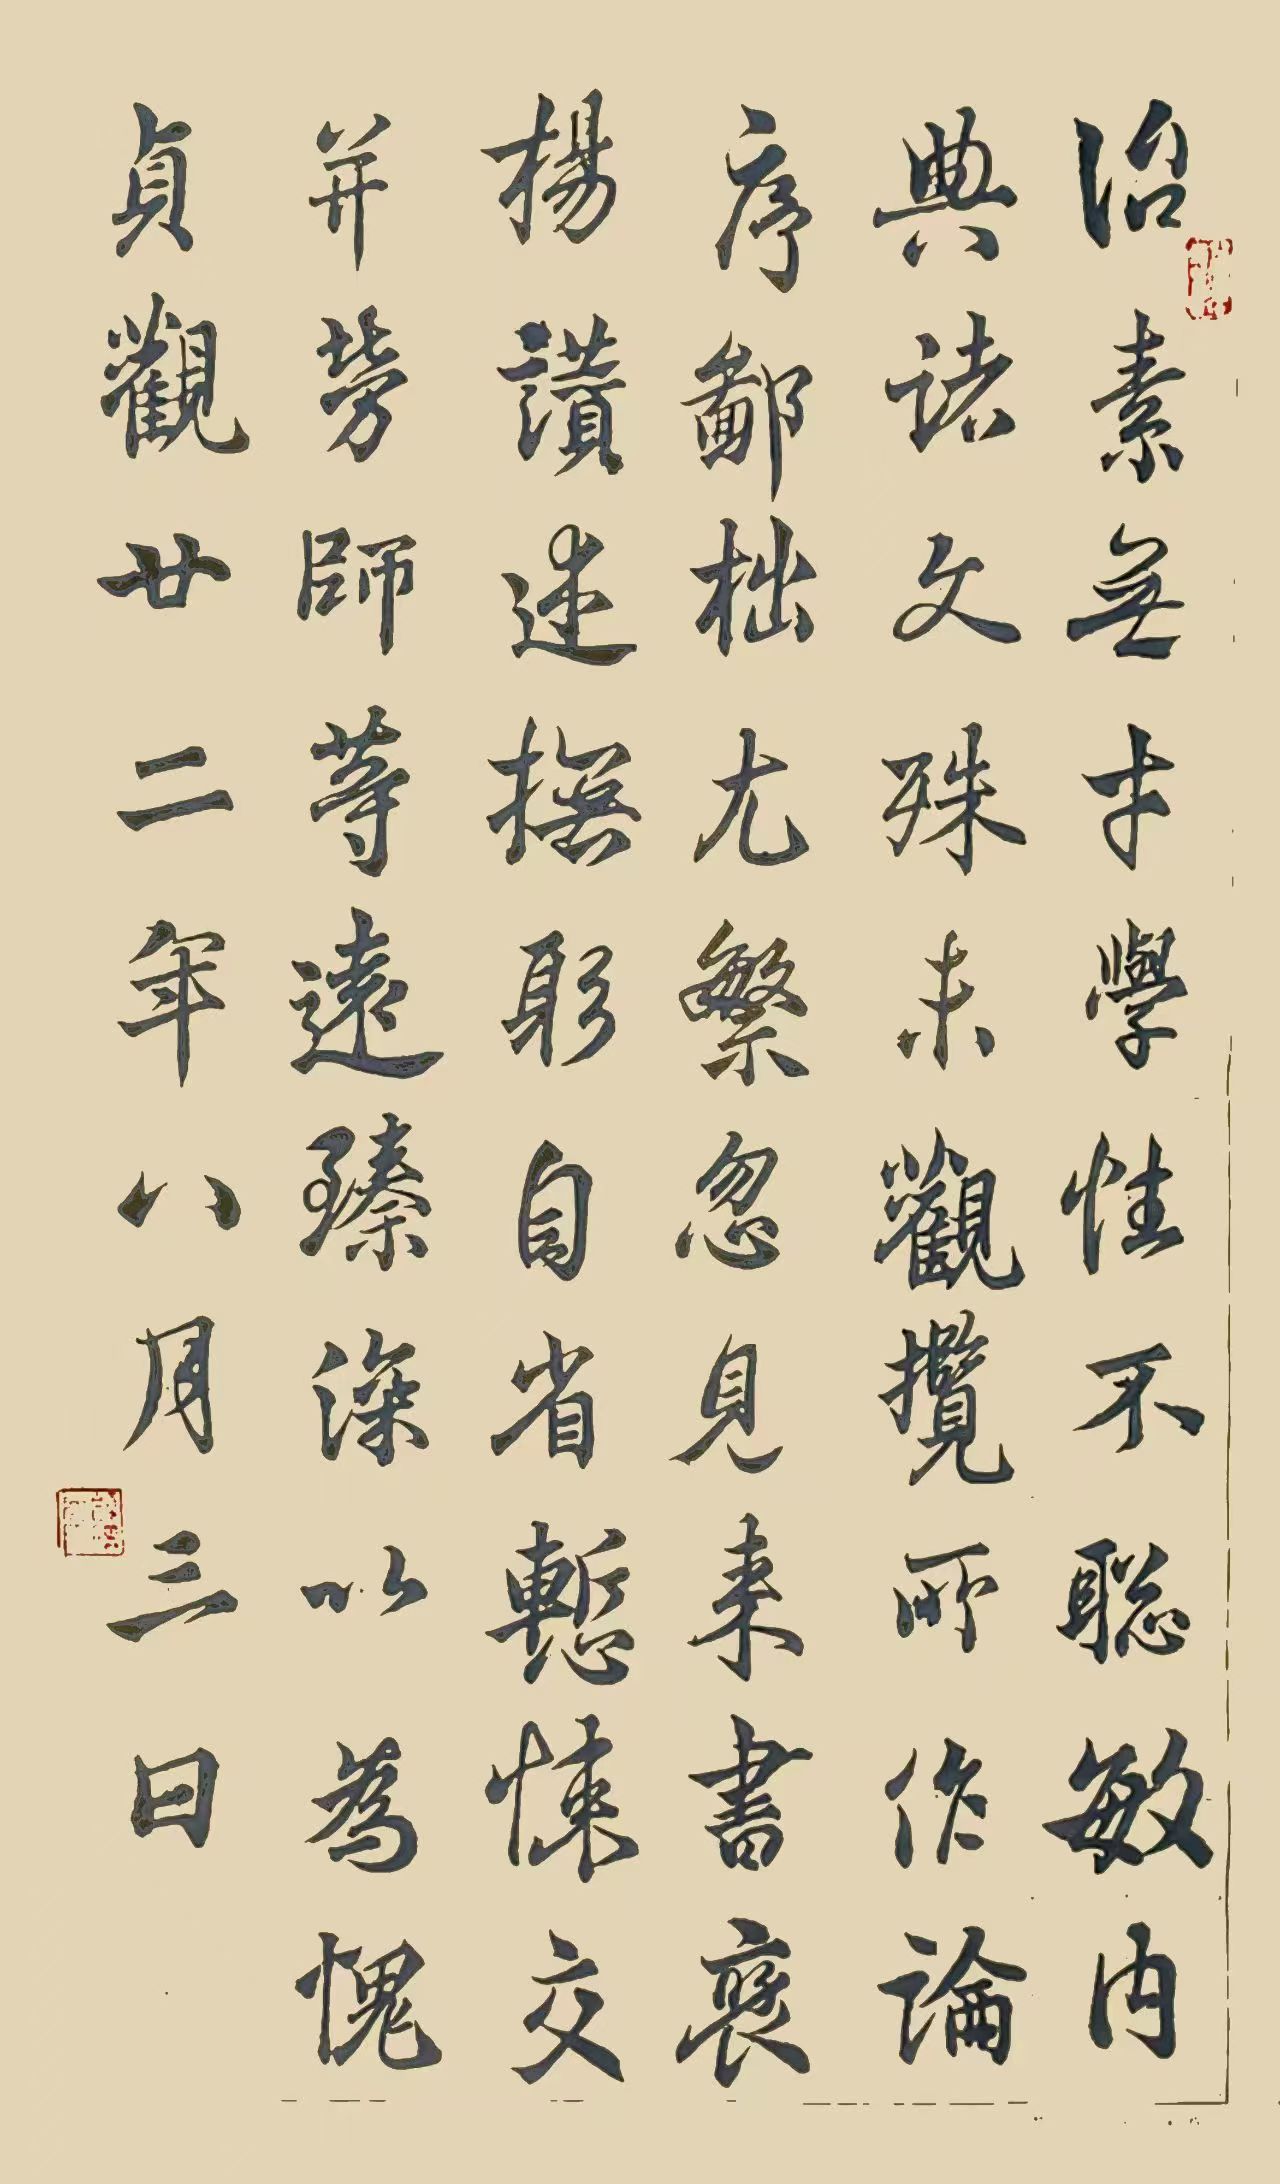 治素無才學性不聡敏内
典諸文殊未觀攬所作論
序鄙拙尤繁忽見來書褒
揚讚述撫躬自省慙悚交
并勞師等遠臻深以為愧
貞觀廿二年八月三日